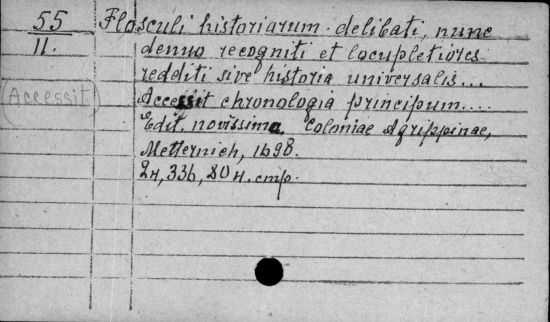 55
II.
(Accessit)
Flosculi historiarum delibati, nunc
denuo recogniti et locupletiores
redditi sive historia universalis...
Accessit chronologia principum....
Edit. novissima. Coloniae Agrippinae,
Metternich, 1698.
2н, 336, 80 н. стр.